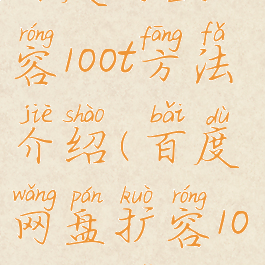 róng fāng fǎ
容100t方法
jiè shào bǎi dù
介绍(百度
wǎng pán kuò róng
网盘扩容10